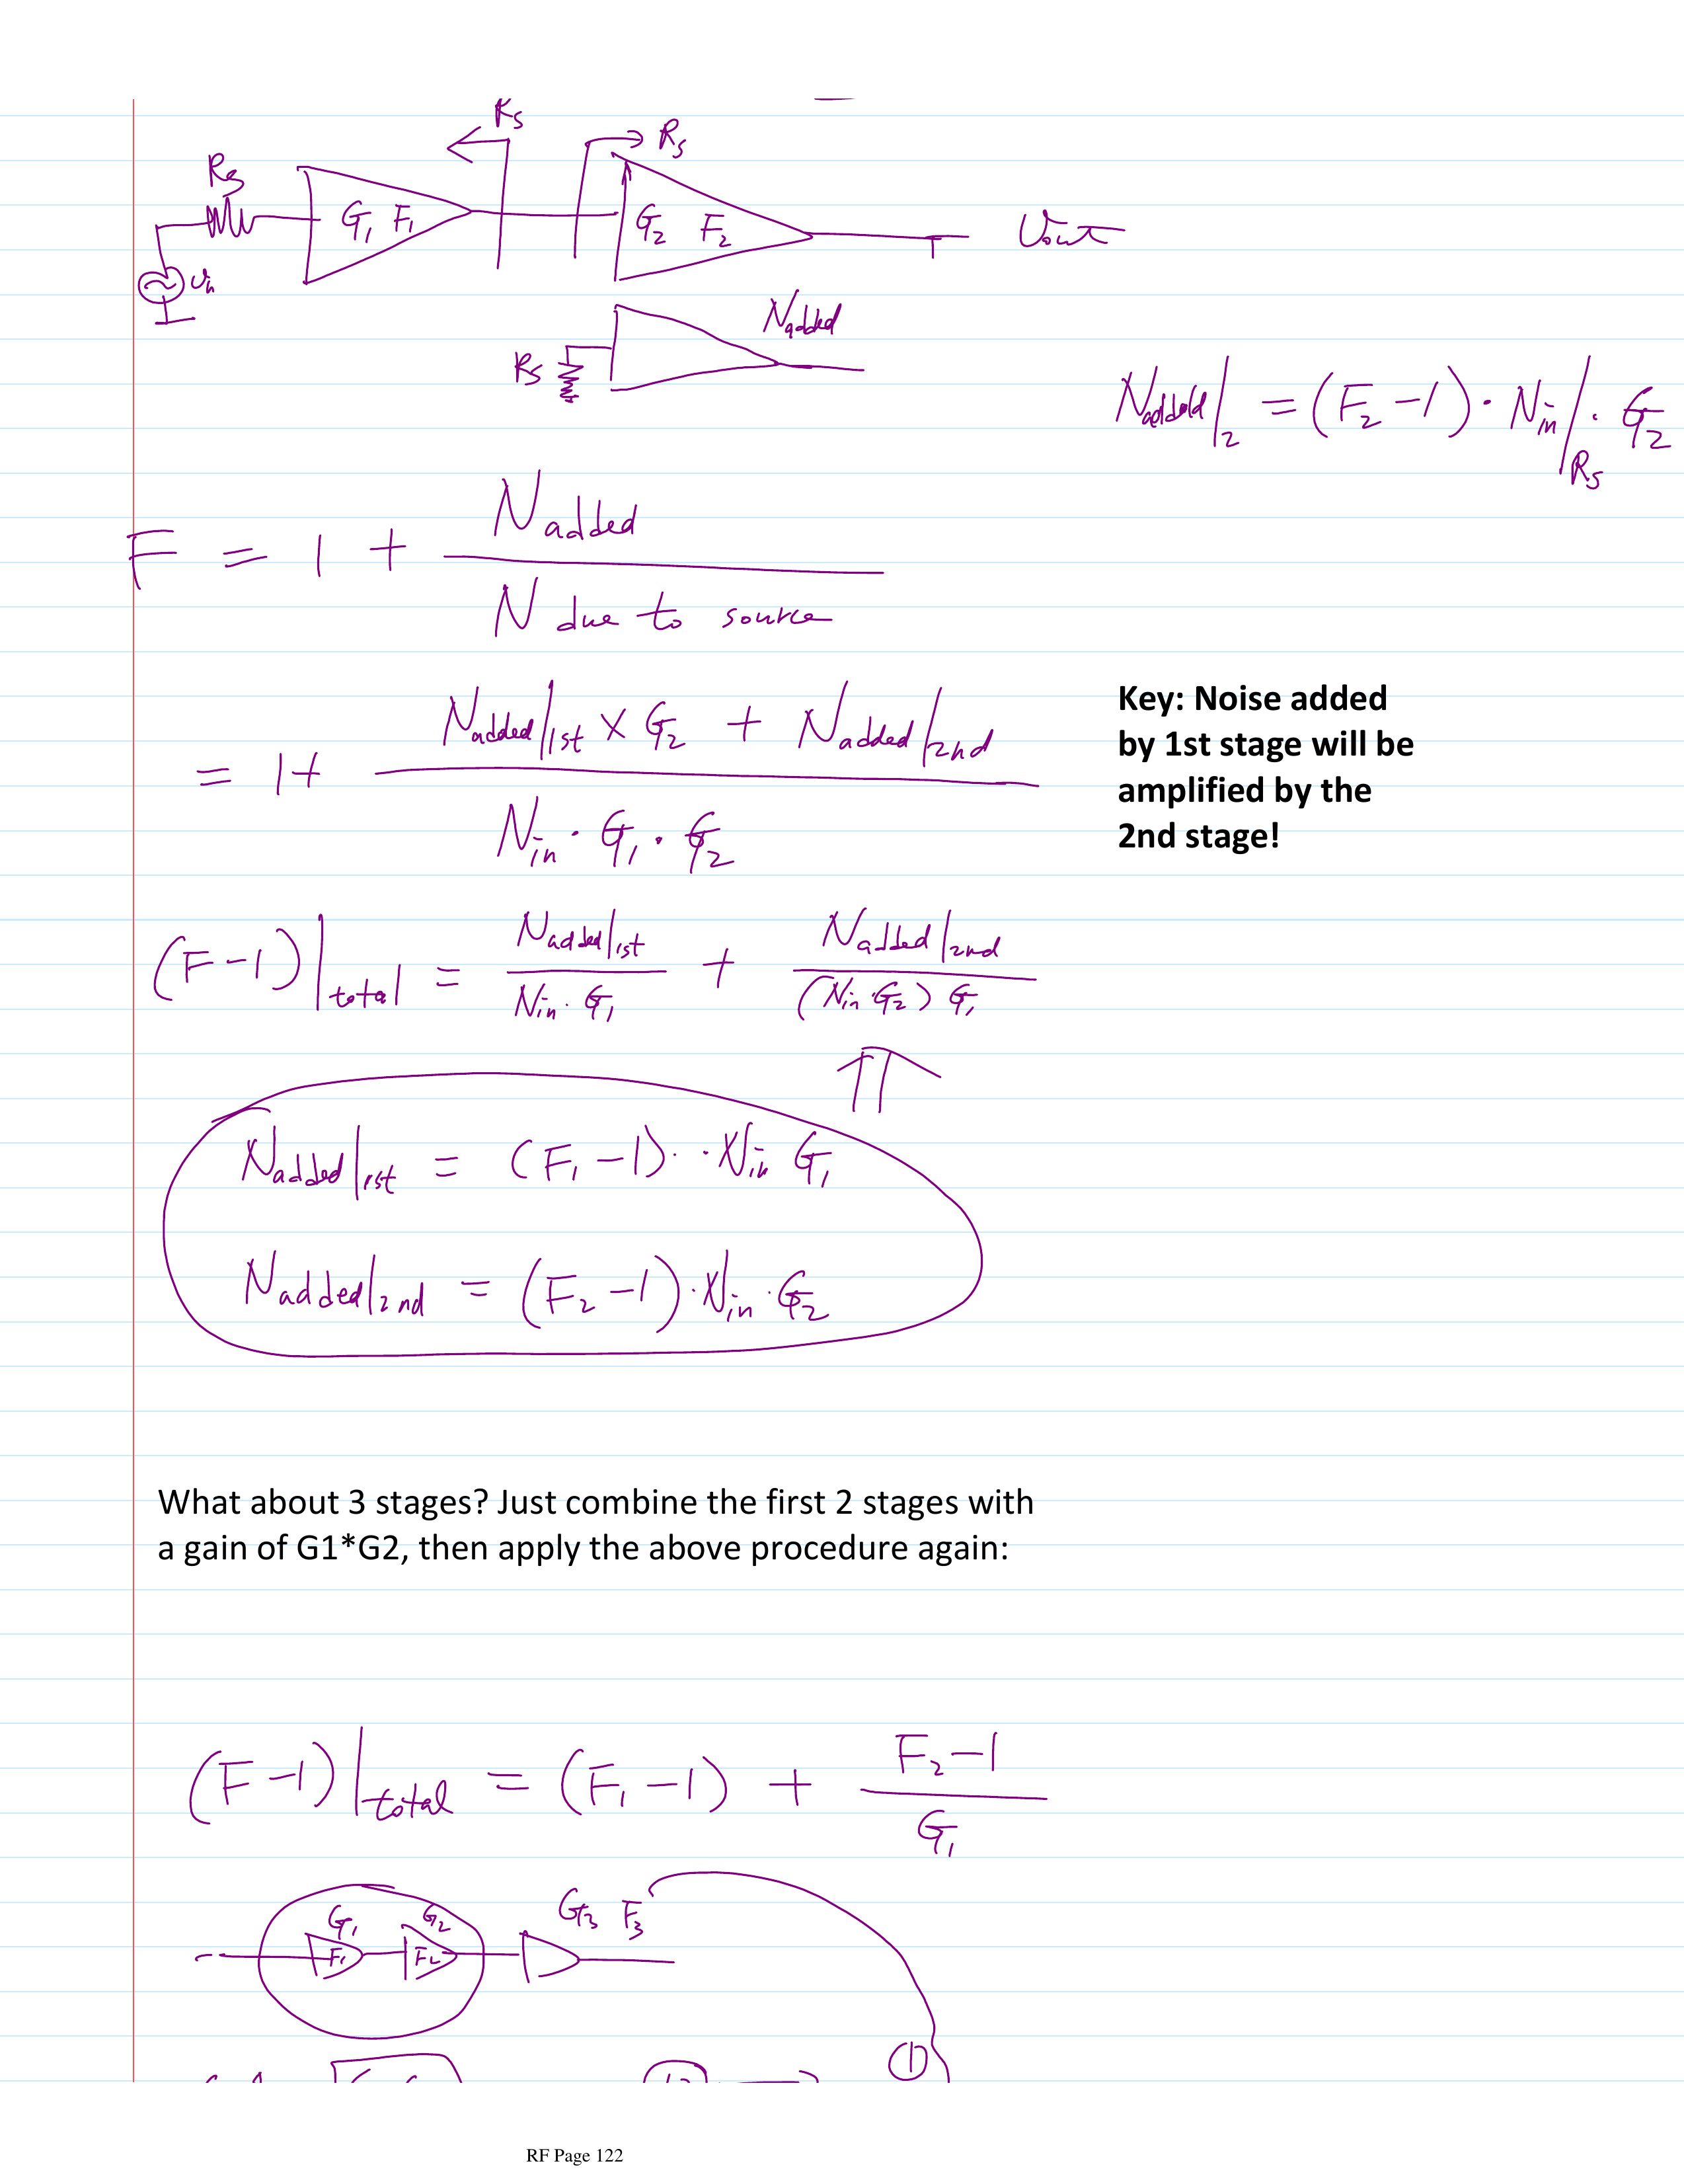 Rs
Rs
Rs
G1 F1
G2 F2
Vout
Vin
Nadded
Rs
Nadded|2 = (F2 -1) · Nin|Rs · G2
F = 1 + Nadded / N due to source
= 1 + (Nadded|1st × G2 + Nadded|2nd) / (Nin · G1 · G2)
Key: Noise added
by 1st stage will be
amplified by the
2nd stage!
(F-1)|total = Nadded|1st / (Nin · G1) + Nadded|2nd / ((Nin · G2) G1)
Nadded|1st = (F1 -1) · · Nin G1
Nadded|2nd = (F2 -1) · Nin · G2
What about 3 stages? Just combine the first 2 stages with
a gain of G1*G2, then apply the above procedure again:
(F-1)|total = (F1 -1) + (F2 -1) / G1
G1 G2 G3 F3
F1 F2
1
RF Page 122